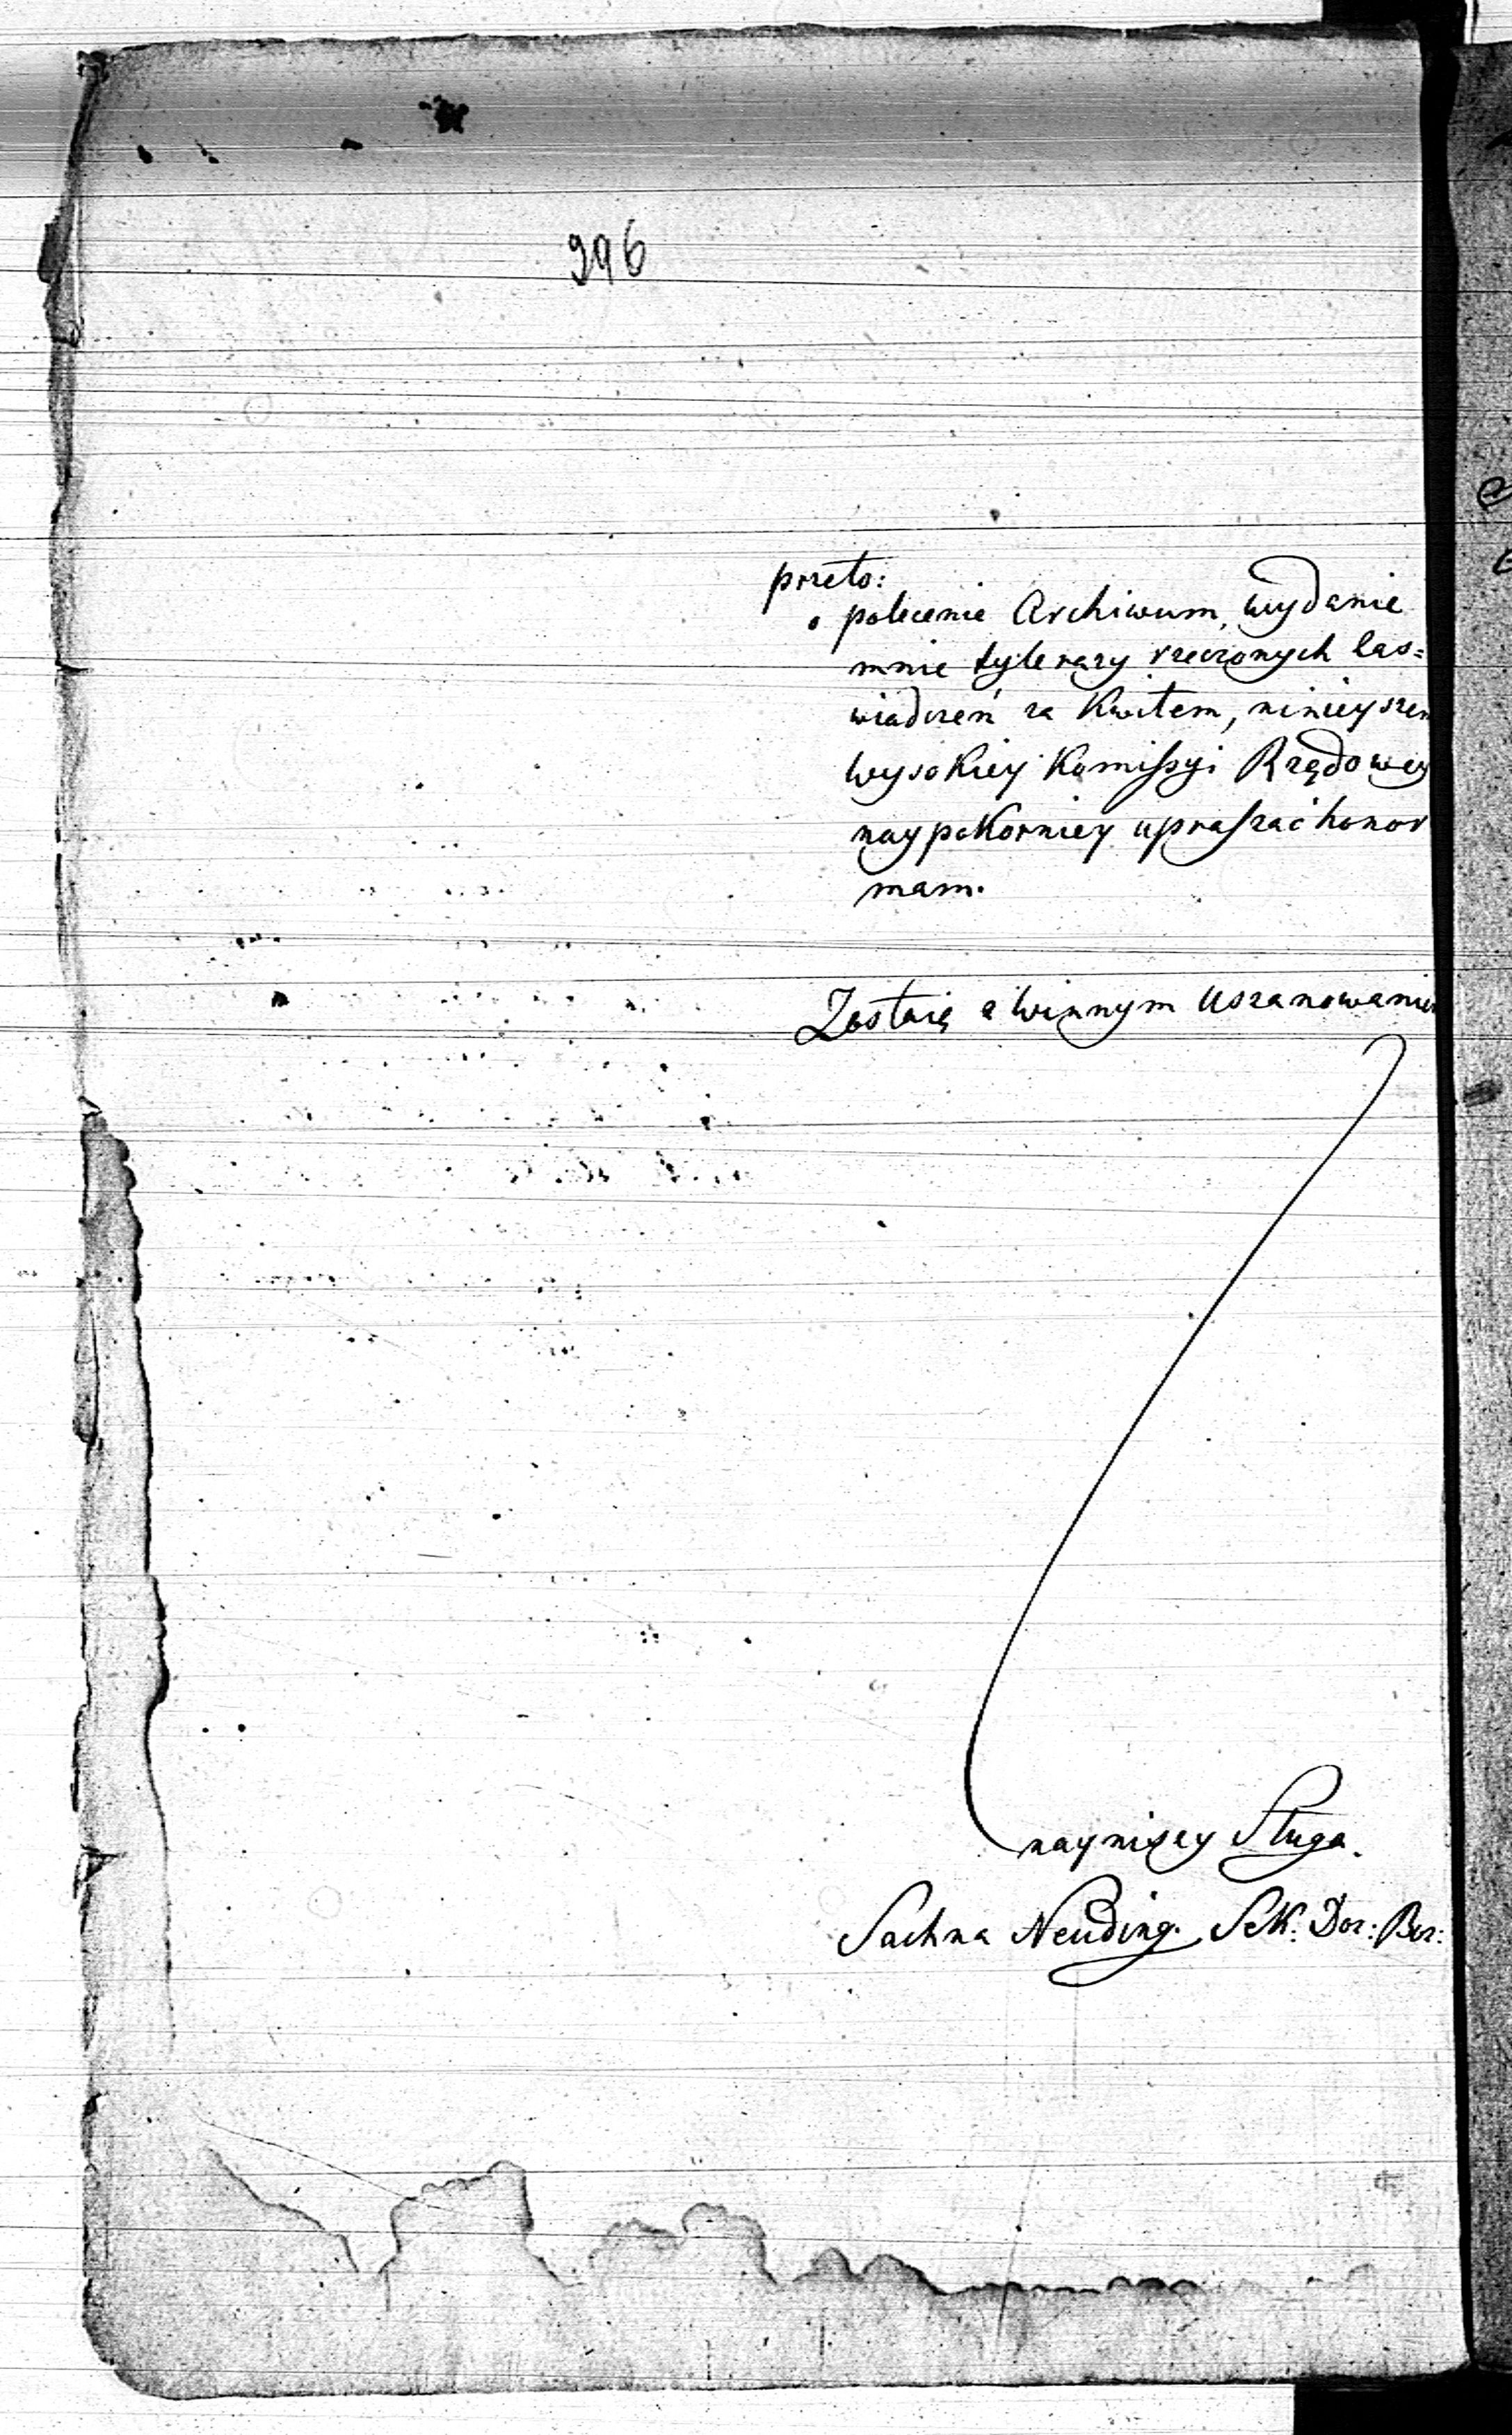 296
przeto:
o polecenie Archiwum, wydanie
mnie tylerazy rzeczonych Zaś=
wiadczeń za Kwitem, ninieyszem
Wysokiey Komissyi Rządowey
naypokorniey upraszać honor
mam.
Zostaię z winnym Uszanowaniem
nayniższy Sługa.
Sachna Neuding. Sek: Doz: Boz: